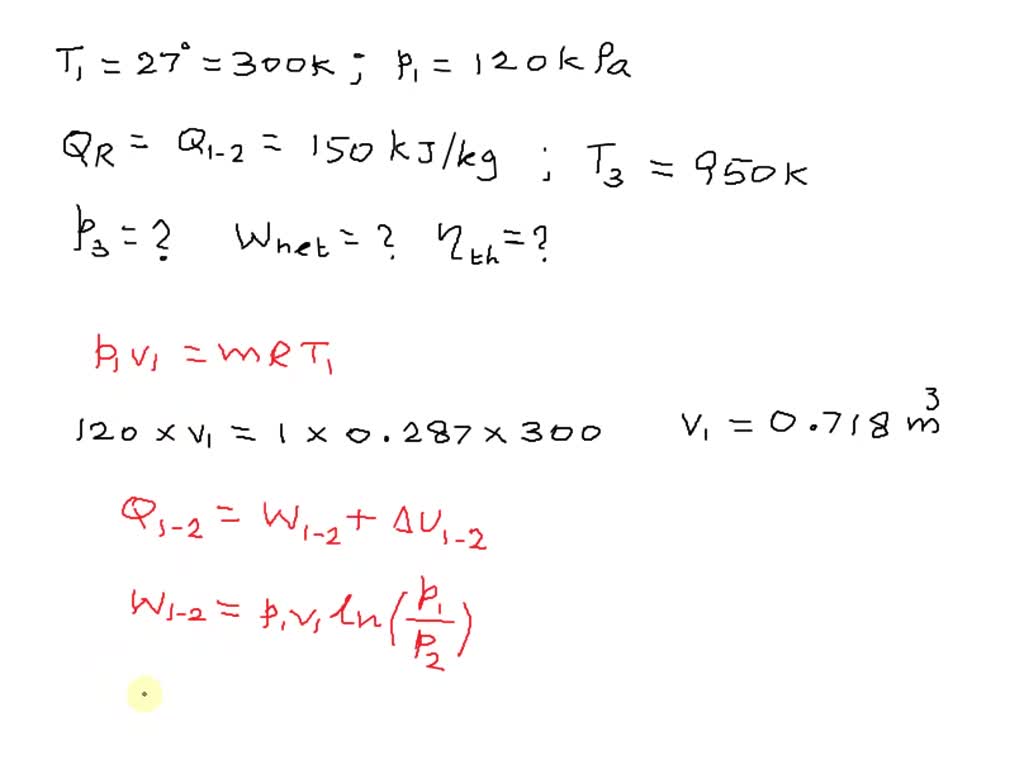 T₁ = 27° = 300K ; p₁ = 120 kPa
Q_R = Q₁₋₂ = 150 kJ/kg ; T₃ = 950K
p₃ = ? W_net = ? η_th = ?
p₁v₁ = mRT₁
120 × v₁ = 1 × 0.287 × 300 v₁ = 0.718 m³
Q₁₋₂ = W₁₋₂ + ΔU₁₋₂
W₁₋₂ = p₁v₁ ln(p₁/p₂)